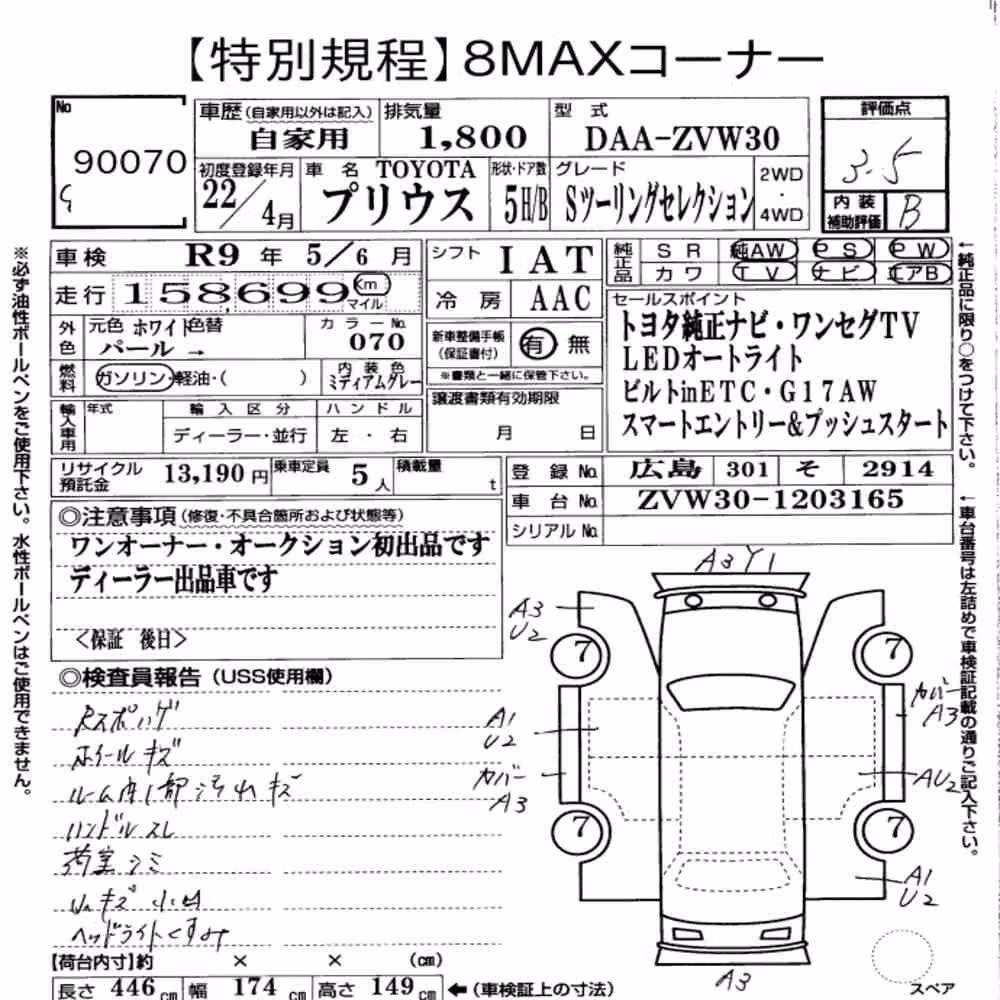 【特別規程】8MAXコーナー
No 90070
車歴(自家用以外は記入) 自家用
排気量 1,800
型式 DAA-ZVW30
評価点 3.5
初度登録年月 22/4月
車名 TOYOTA プリウス
形状・ドア数 5H/B
グレード Sツーリングセレクション
2WD・4WD
内装補助評価 B
車検 R9年 5/6月
シフト IAT
純正品 SR 純AW PS PW
カワ TV ナビ エアB
走行 158,699 Km マイル
冷房 AAC
外色 元色 ホワイトパール → 色替
カラーNo. 070
新車整備手帳(保証書付) 有 無
※書類と一緒に保管下さい。
燃料 ガソリン・軽油・( )
内装色 ミディアムグレー
セールスポイント
トヨタ純正ナビ・ワンセグTV
LEDオートライト
ビルトinETC・G17AW
スマートエントリー&プッシュスタート
輸入車用 年式 輸入区分 ハンドル
ディーラー・並行 左・右
譲渡書類有効期限
月 日
リサイクル預託金 13,190円
乗車定員 5人
積載量 t
登録No. 広島 301 そ 2914
車台No. ZVW30-1203165
シリアルNo.
◎注意事項(修復・不具合箇所および状態等)
ワンオーナー・オークション初出品です
ディーラー出品車です
<保証 後日>
◎検査員報告(USS使用欄)
Rスポハゲ
ホイールキズ
ルーム内1部汚れキズ
ハンドルスレ
荷室シミ
キズ
ヘッドライトくすみ
A3 Y1
A3
U2
7
7
カバー
A3
A1
U2
カバー
A3
AU2
7
7
A1
U2
A3
スペア
【荷台内寸】約 × × (cm)
長さ 446cm 幅 174cm 高さ 149cm ←(車検証上の寸法)
※必ず油性ボールペンをご使用下さい。水性ボールペンはご使用できません。
←純正品に限り○をつけて下さい。
←車台番号は左詰めで車検証記載の通りご記入下さい。